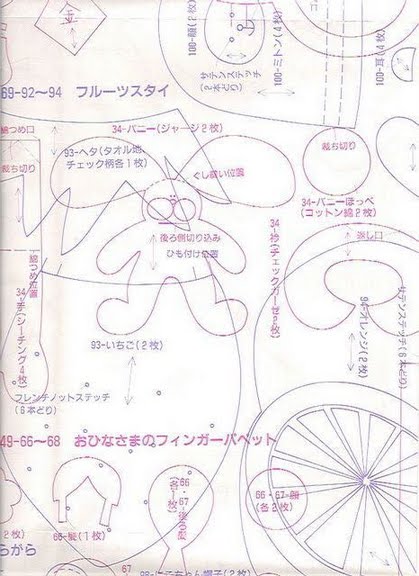 金
100-顔(2枚)
サテンステッチ
(2本どり)
100-ミトン(4枚)
100-耳(4枚)
69-92〜94 フルーツスタイ
綿つめ口
34-バニー(ジャージ2枚)
93-ヘタ(タオル地、
チェック柄各1枚)
裁ち切り
ぐし縫い位置
裁ち切り
34-バニーほっぺ
(コットン綿2枚)
後ろ側切り込み
ひも付け位置
返し口
綿つめ位置
34-手(シーチング4枚)
34-衿(チェックガーゼ2枚)
94-オレンジ(2枚)
サテンステッチ(6本どり)
93-いちご(2枚)
フレンチノットステッチ
(6本どり)
49-66〜68 おひなさまのフィンガーパペット
66・67-顔
(各2枚)
66-髪(1枚)
2枚)
らがら
67